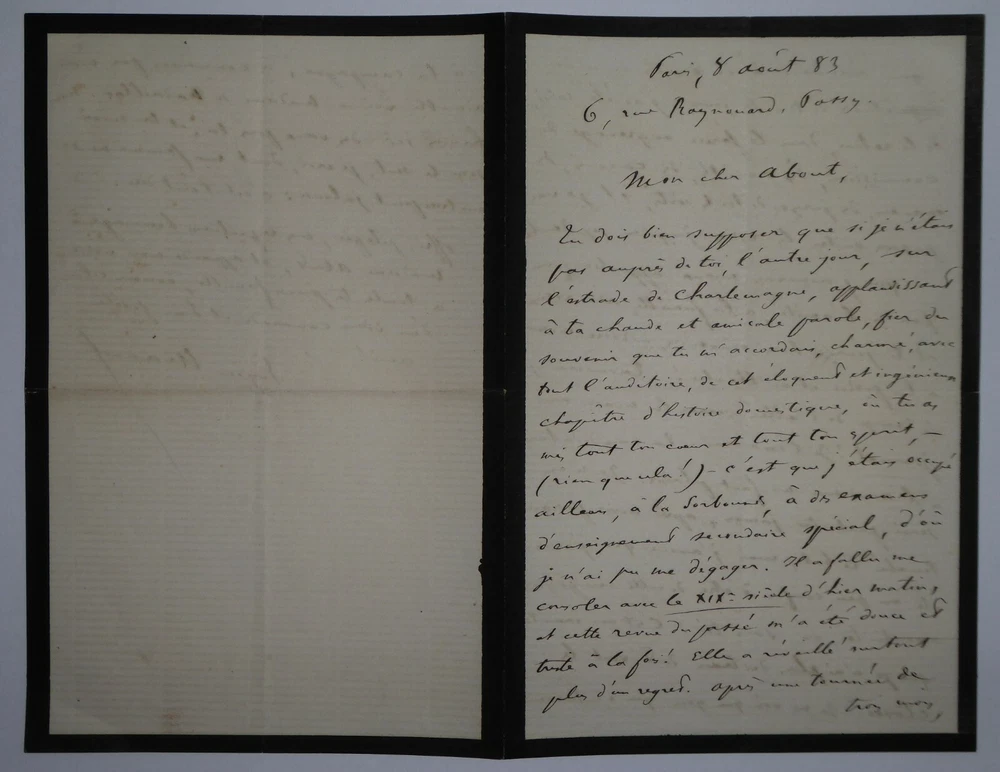 Paris, 8 août 83
6, rue Raynouard. Passy.
Mon cher About,
Tu dois bien supposer que si je n'étais
pas auprès de toi, l'autre jour, sur
l'estrade de Charlemagne, applaudissant
à ta chaude et amicale parole, fier du
souvenir que tu m'accordais, charmé, avec
tout l'auditoire, de cet éloquent et ingénieux
chapître d'histoire domestique, où tu as
mis tout ton cœur et tout ton esprit, —
(rien que cela !) — c'est que j'étais occupé
ailleurs, à la Sorbonne, à des examens
d'enseignement secondaire spécial, d'où
je n'ai pu me dégager. Il a fallu me
consoler avec le XIXe siècle d'hier matin,
et cette revue du passé m'a été douce et
triste à la fois ! Elle a réveillé surtout
plus d'un regret. Après une tournée de
trois mois,